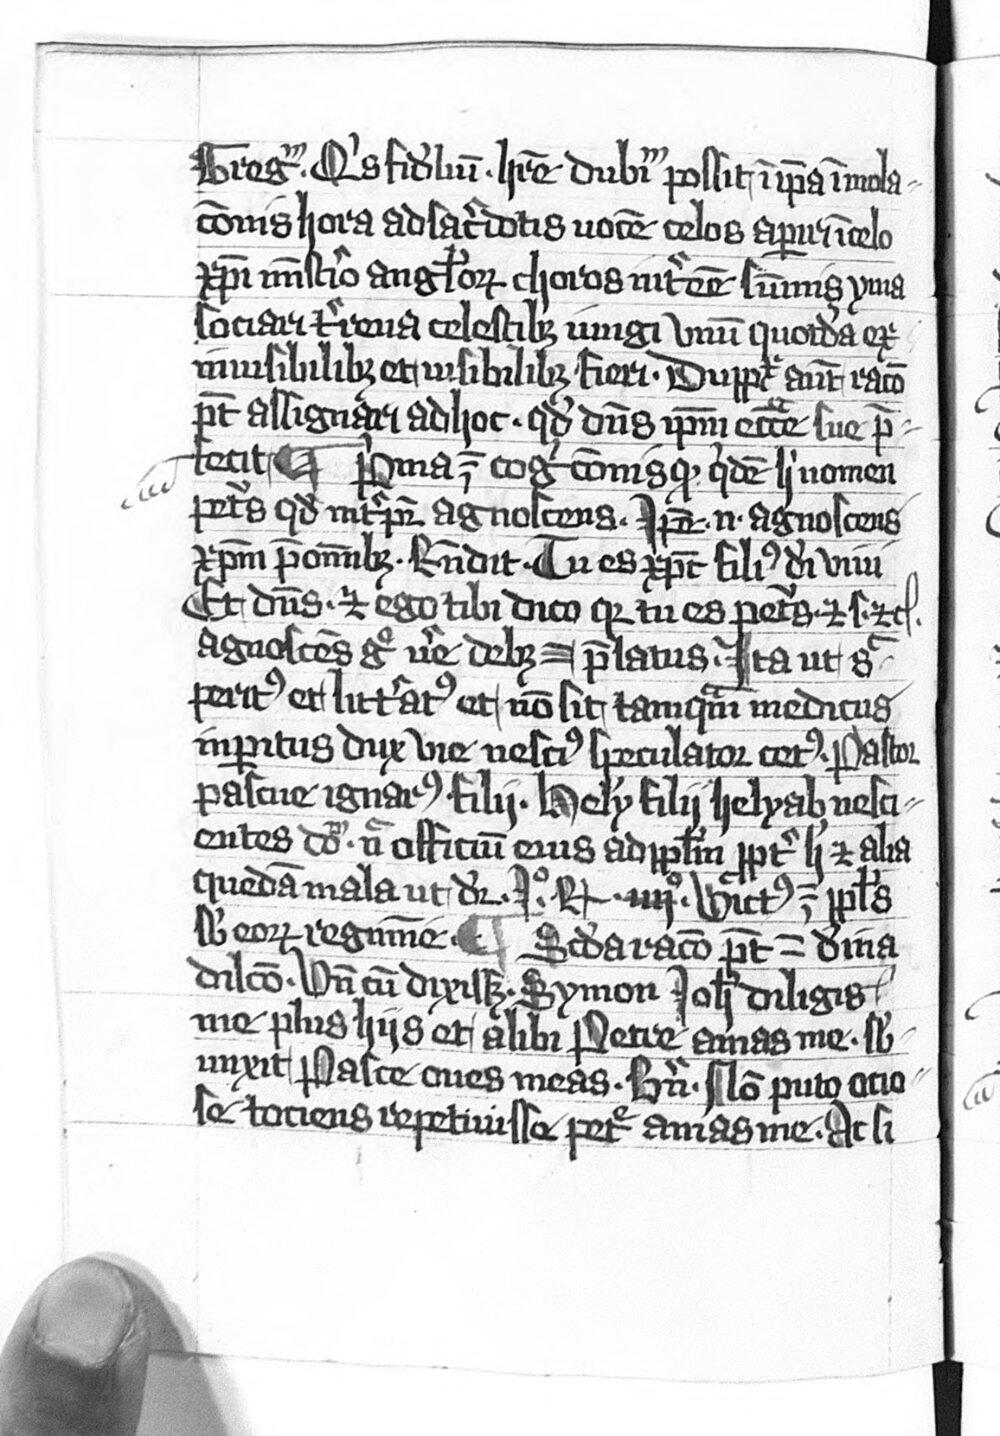 Gregͫ. Qͥs fid̄liū. hr̄e dubiͫ possit, ī ip̄a īmola-
c̄onis hora ad sac̄idotis uoce celos aperiri ī celo
xp̄i mīst̄io angl̄'oꝝ choros int̄eē sūmis yma
sociari t̄rena celestibꝫ iungi vnū quoddā ex
inuisibilibꝫ et uisibilibꝫ fieri. Duppl̄r aūt rac̄o
p̄t assignari ad hoc. qd̄ dn̄s ip̄m ecc̄e sue p̄-
fecit ¶ Pͥma ē cogͥc̄onis qꝫ qͥdē hͥ nomen
pet̄s qd̄ int̄p̄r agnoscens. Ip̄e .n. agnoscens
xp̄m p̄ omībꝫ. Rn̄dit. Tu es xp̄c filiꝰ d̄i viui
Et dn̄s. ⁊ ego tibi dico qꝛ tu es pet̄s. ⁊ s. ⁊c̄.
agnoscēs gͦ v̄e debꝫ = p̄latus. Ita ut sͣ-
peritꝰ et litt̄atꝰ et nō sit tamqͣm medicus
inp̄itus dux vie nesciꝰ speculator cecꝰ. Pastor
pascue ignarꝰ. filij. Hely filij helyab nesci-
entes do͞m. n̄ officiū eius ad ppl̄m ppt̄ hͥ ⁊ alia
quedā mala ut dr̄. Iͦ. R. iiijͦ. Victꝰ ē ppl̄s
sb̄ eoꝝ regimīe. ¶ Scd̄a rac̄o p̄t = d̄ina
dilc̄o. Vn̄ cū dixissꝫ. Symon Ioh̄ diligis
me plus hijs et alibi Petre amas me. sb̄-
iunxit Pasce oues meas. Bn̄. Nō puto ocio-
se tociens repetiuisse petͤ amas me. Ac si